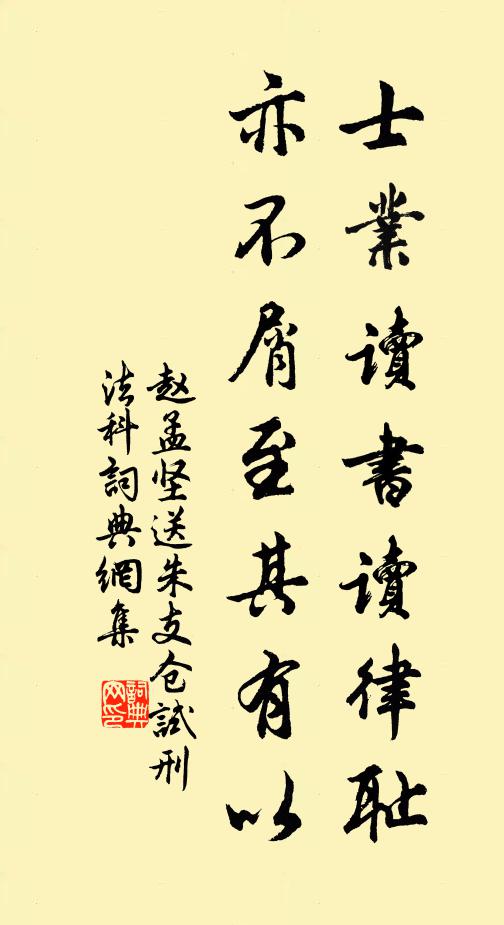 士業讀書讀律耻
亦不屑至其有以
赵孟坚送朱支仓試刑
法科詞典網集
詞典网印